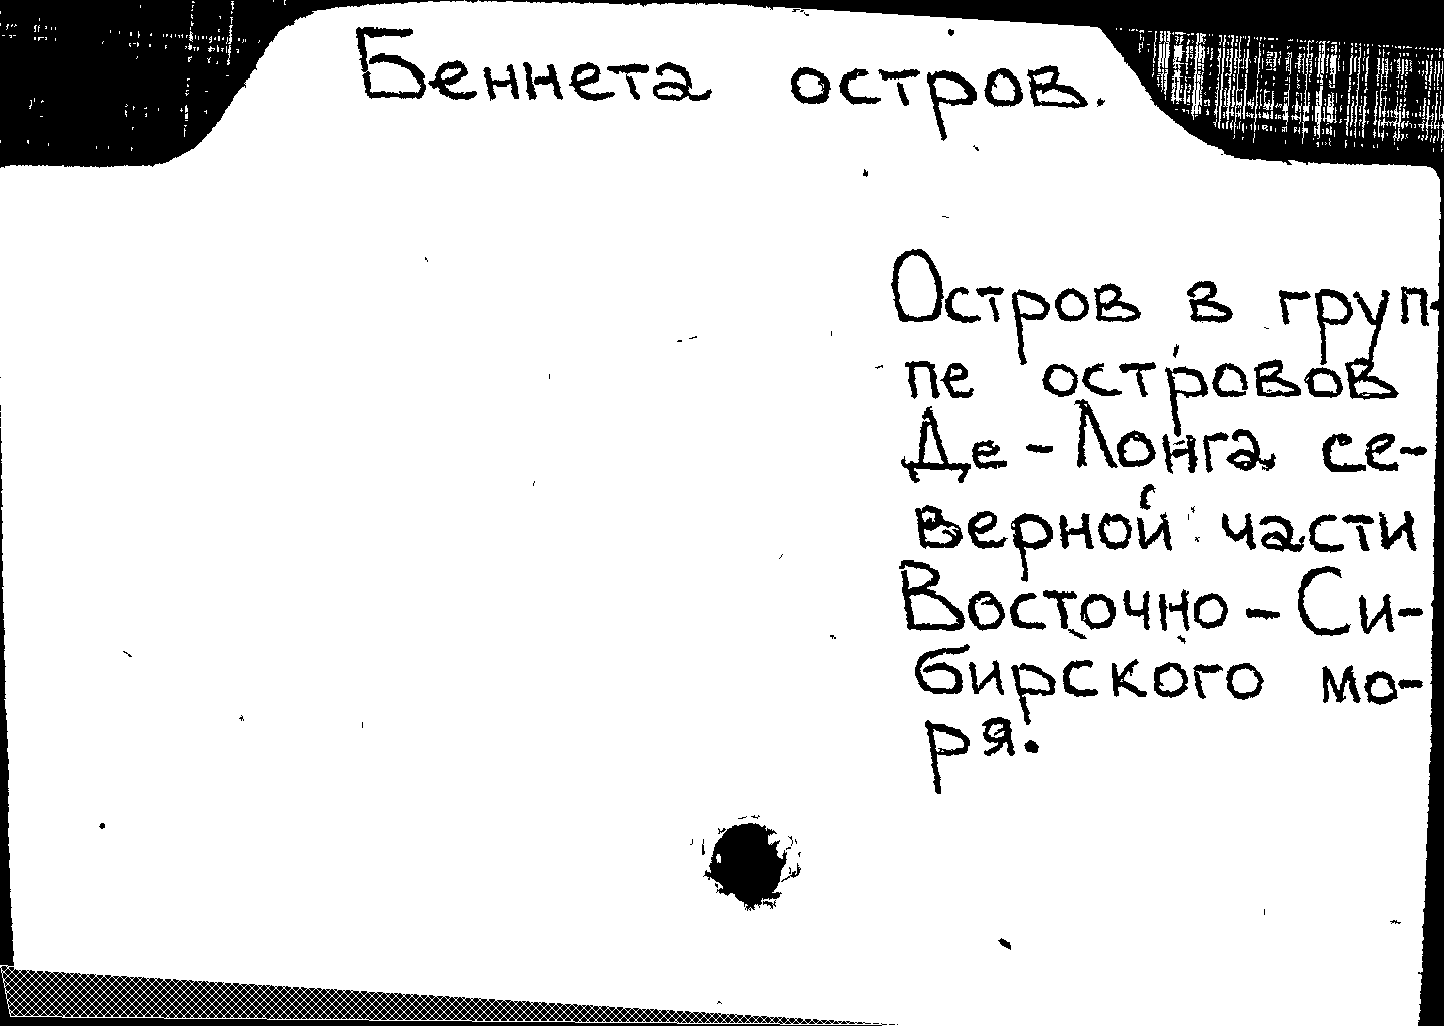 Беннета остров.
Остров в груп-
пе островов
Де-Лонга се-
верной части
Восточно-Си-
бирского мо-
ря.